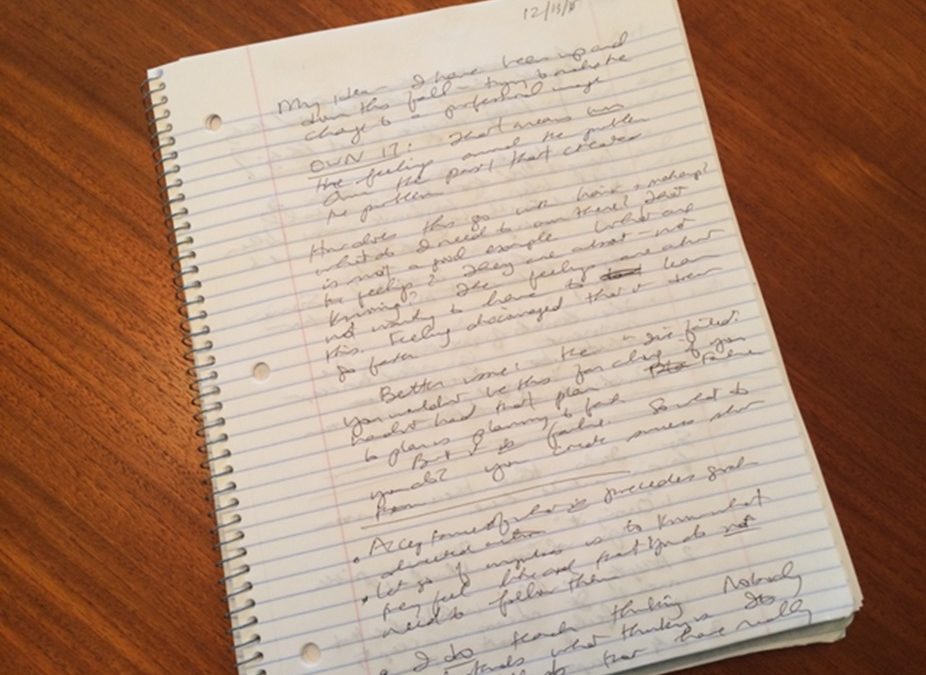 12/13/
My idea I have been up and
down this fall - trying to make the
change to a professional image
OWN IT: That means own
the feelings around the problem
Own the part that creates
the problem
How does this go with hair + makeup?
What do I need to own there? That
is not a good example What are
the feelings? They are about - not
knowing? The feelings are about
not wanting to have to learn
this. Feeling discouraged that it
go faster
Better issue: the - I've failed:
you wouldn't this if you
hadn't had that plan. Failure
to plan is planning to fail
But failure. So what do
you do? You create success
from
• Acceptance of what is precedes goal
directed action
• Let go of is to know what
they feel like and that you do not
need to follow them
• I do teach thinking Nobody
what thinking is
that have really